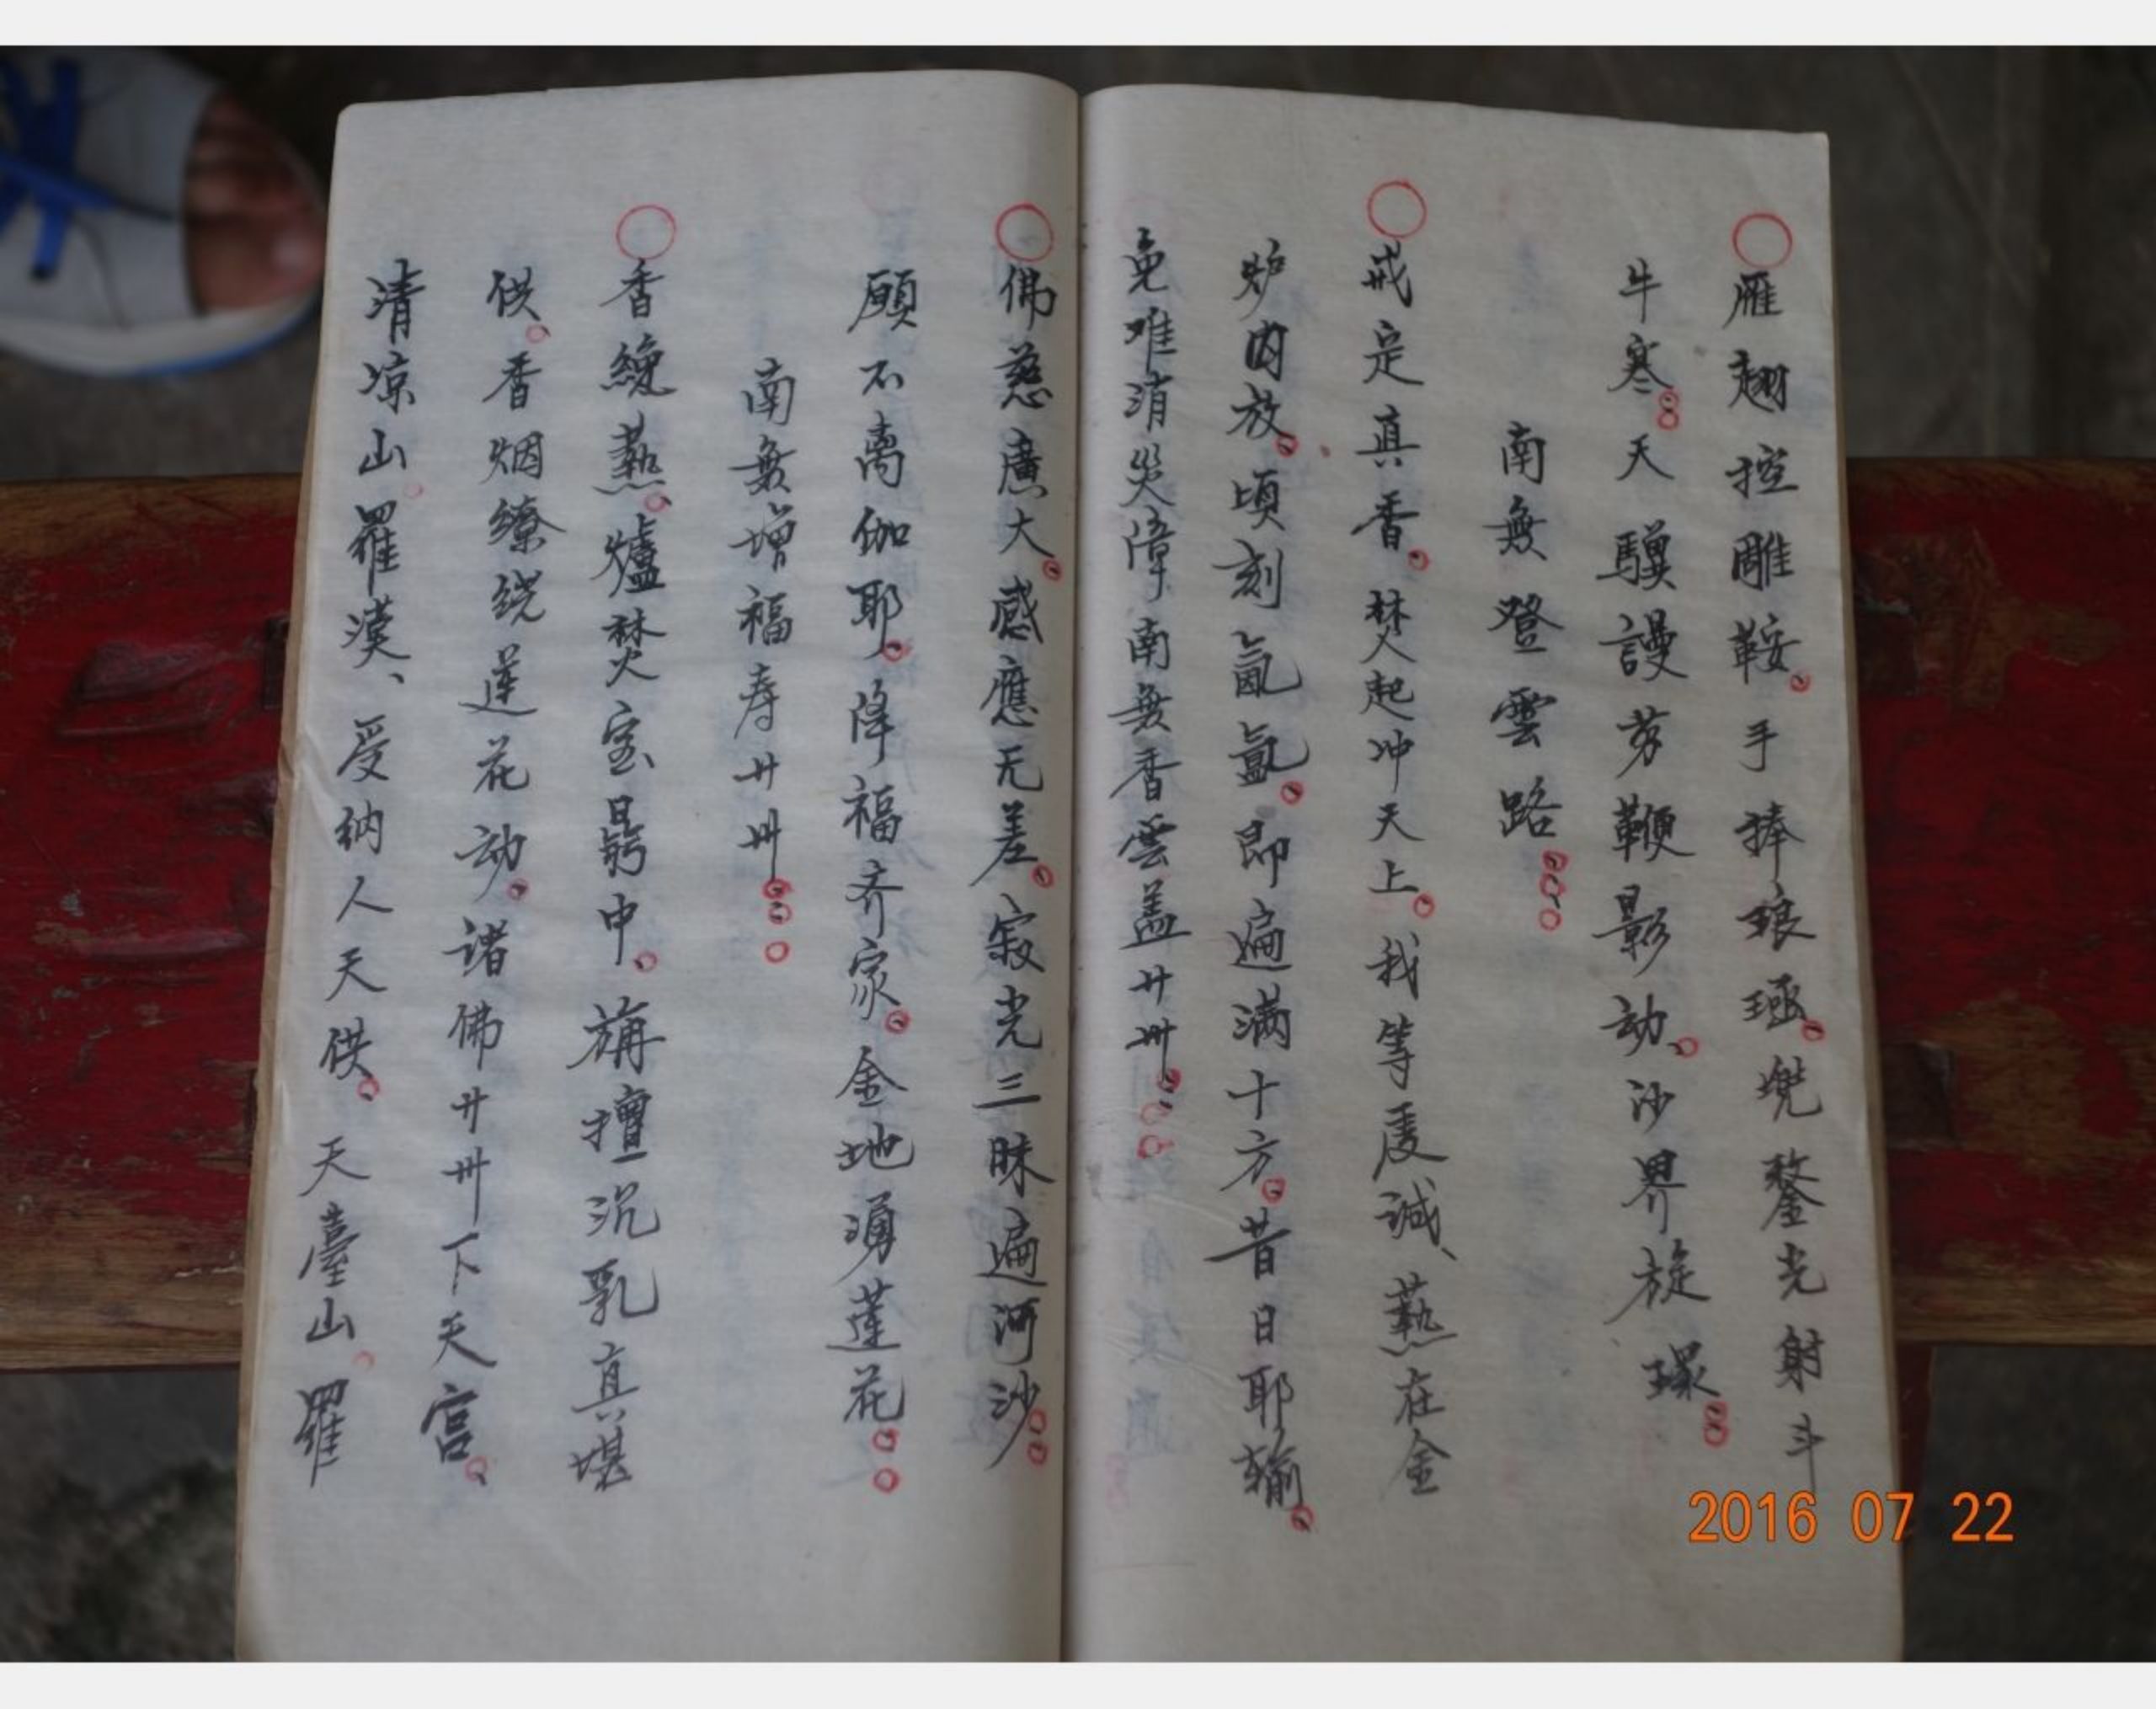 雁翅控雕鞍。手捧琅函。兜鍪光射斗
牛寒。天驥謾剪鞭影动。沙界旋環
南無登雲路
戒定真香。焚起冲天上。我等虔誠、爇在金
炉内放。頃刻氤氲。即遍满十方。昔日耶輸。
免难消災障南無香雲盖廾卅
佛慈廣大。感應无差。寂光三昧遍河沙
願不离伽耶。降福齐家。金地湧蓮花
南無增福寿廾卅
香纔爇。爐焚宝鼎中。旃擅沉乳真堪
供。香烟缭绕莲花动。诸佛廾卅下天宫。
清凉山。羅漢、受纳人天供。天臺山。羅
2016 07 22